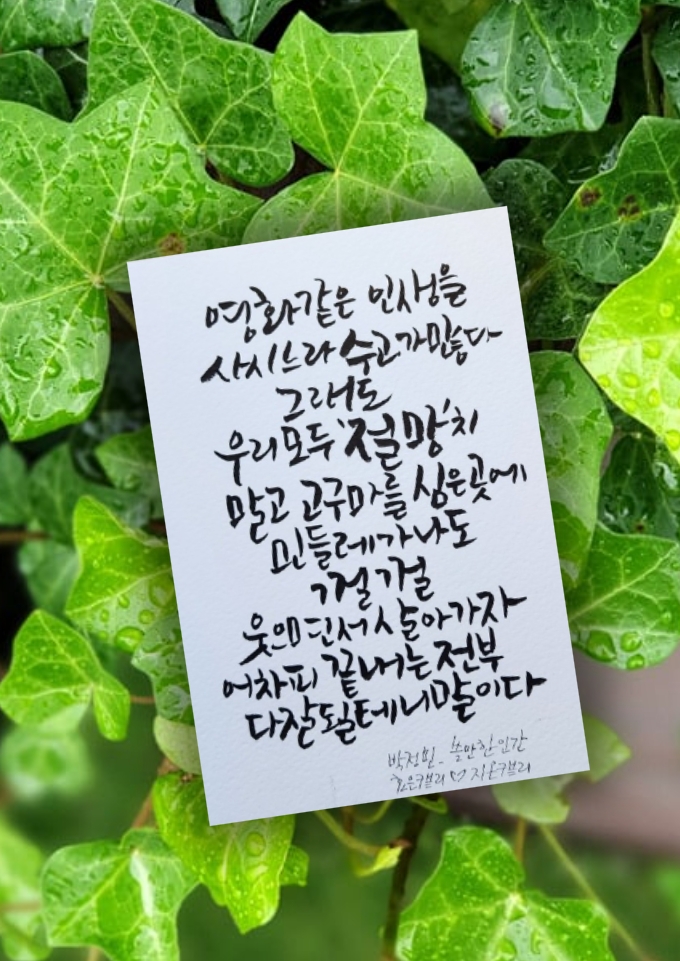 영화같은 인생을
사시느라 수고가많다
그래도
우리모두 '절망'치
말고 고구마를 심은곳에
민들레가나도
껄껄
웃으면서살아가자
어차피 끝내는전부
다잘될테니말이다
박정민_ 쓸만한인간
지은캘리